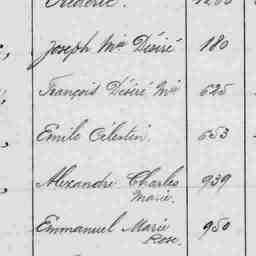 Frédéric.
Joseph Mie Désiré 180
François Désiré Mie 625
Emile Célestin. 653
Alexandre Charles 939
Marie.
Emmanuel Marie 950
Rose.